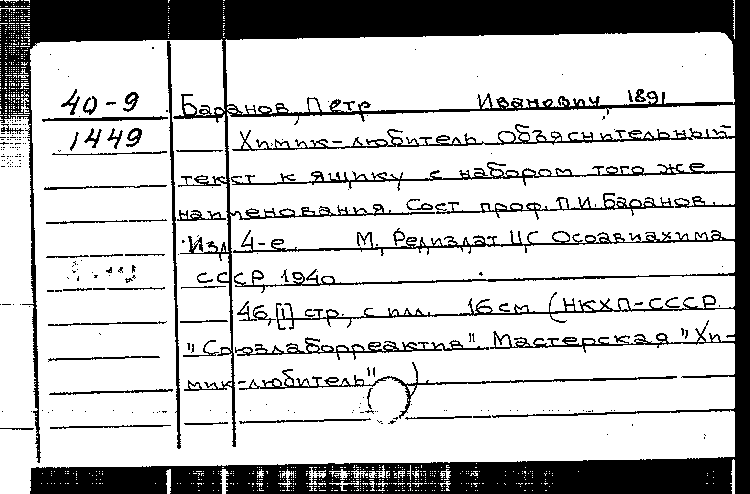 40-9 Баранов, Петр Иванович, 1891
1449 Химик-любитель. Объяснительный
текст к ящику с набором того же
наименования. Сост. проф. П.И. Баранов.
Изд. 4-е. М, Редиздат ЦС Осоавиахима
СССР, 1940
46,[1] стр., с илл. 16 см. (НКХП-СССР
"Союзлаборреактив". Мастерская "Хи-
мик-любитель").